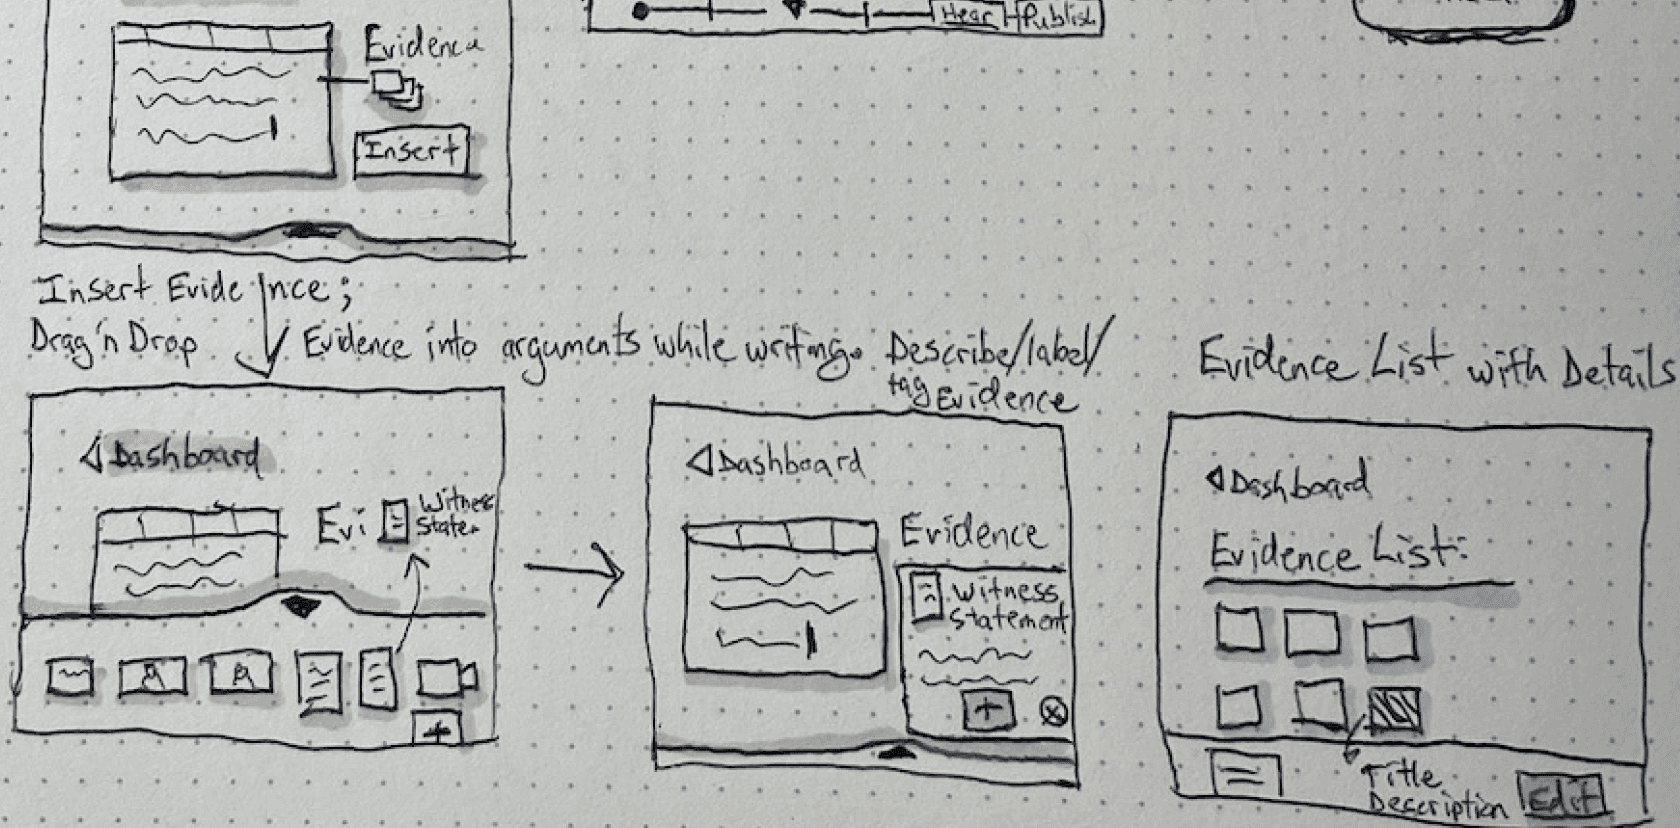 Evidence
Insert
Hear Publish
Insert Evidence;
Drag'n Drop Evidence into arguments while writing.
Describe/label/
tag Evidence
Evidence List with Details
◁Dashboard
Evi
Witness
State
◁Dashboard
Evidence
Witness
Statement
+
◁Dashboard
Evidence List:
Title
Description
Edit